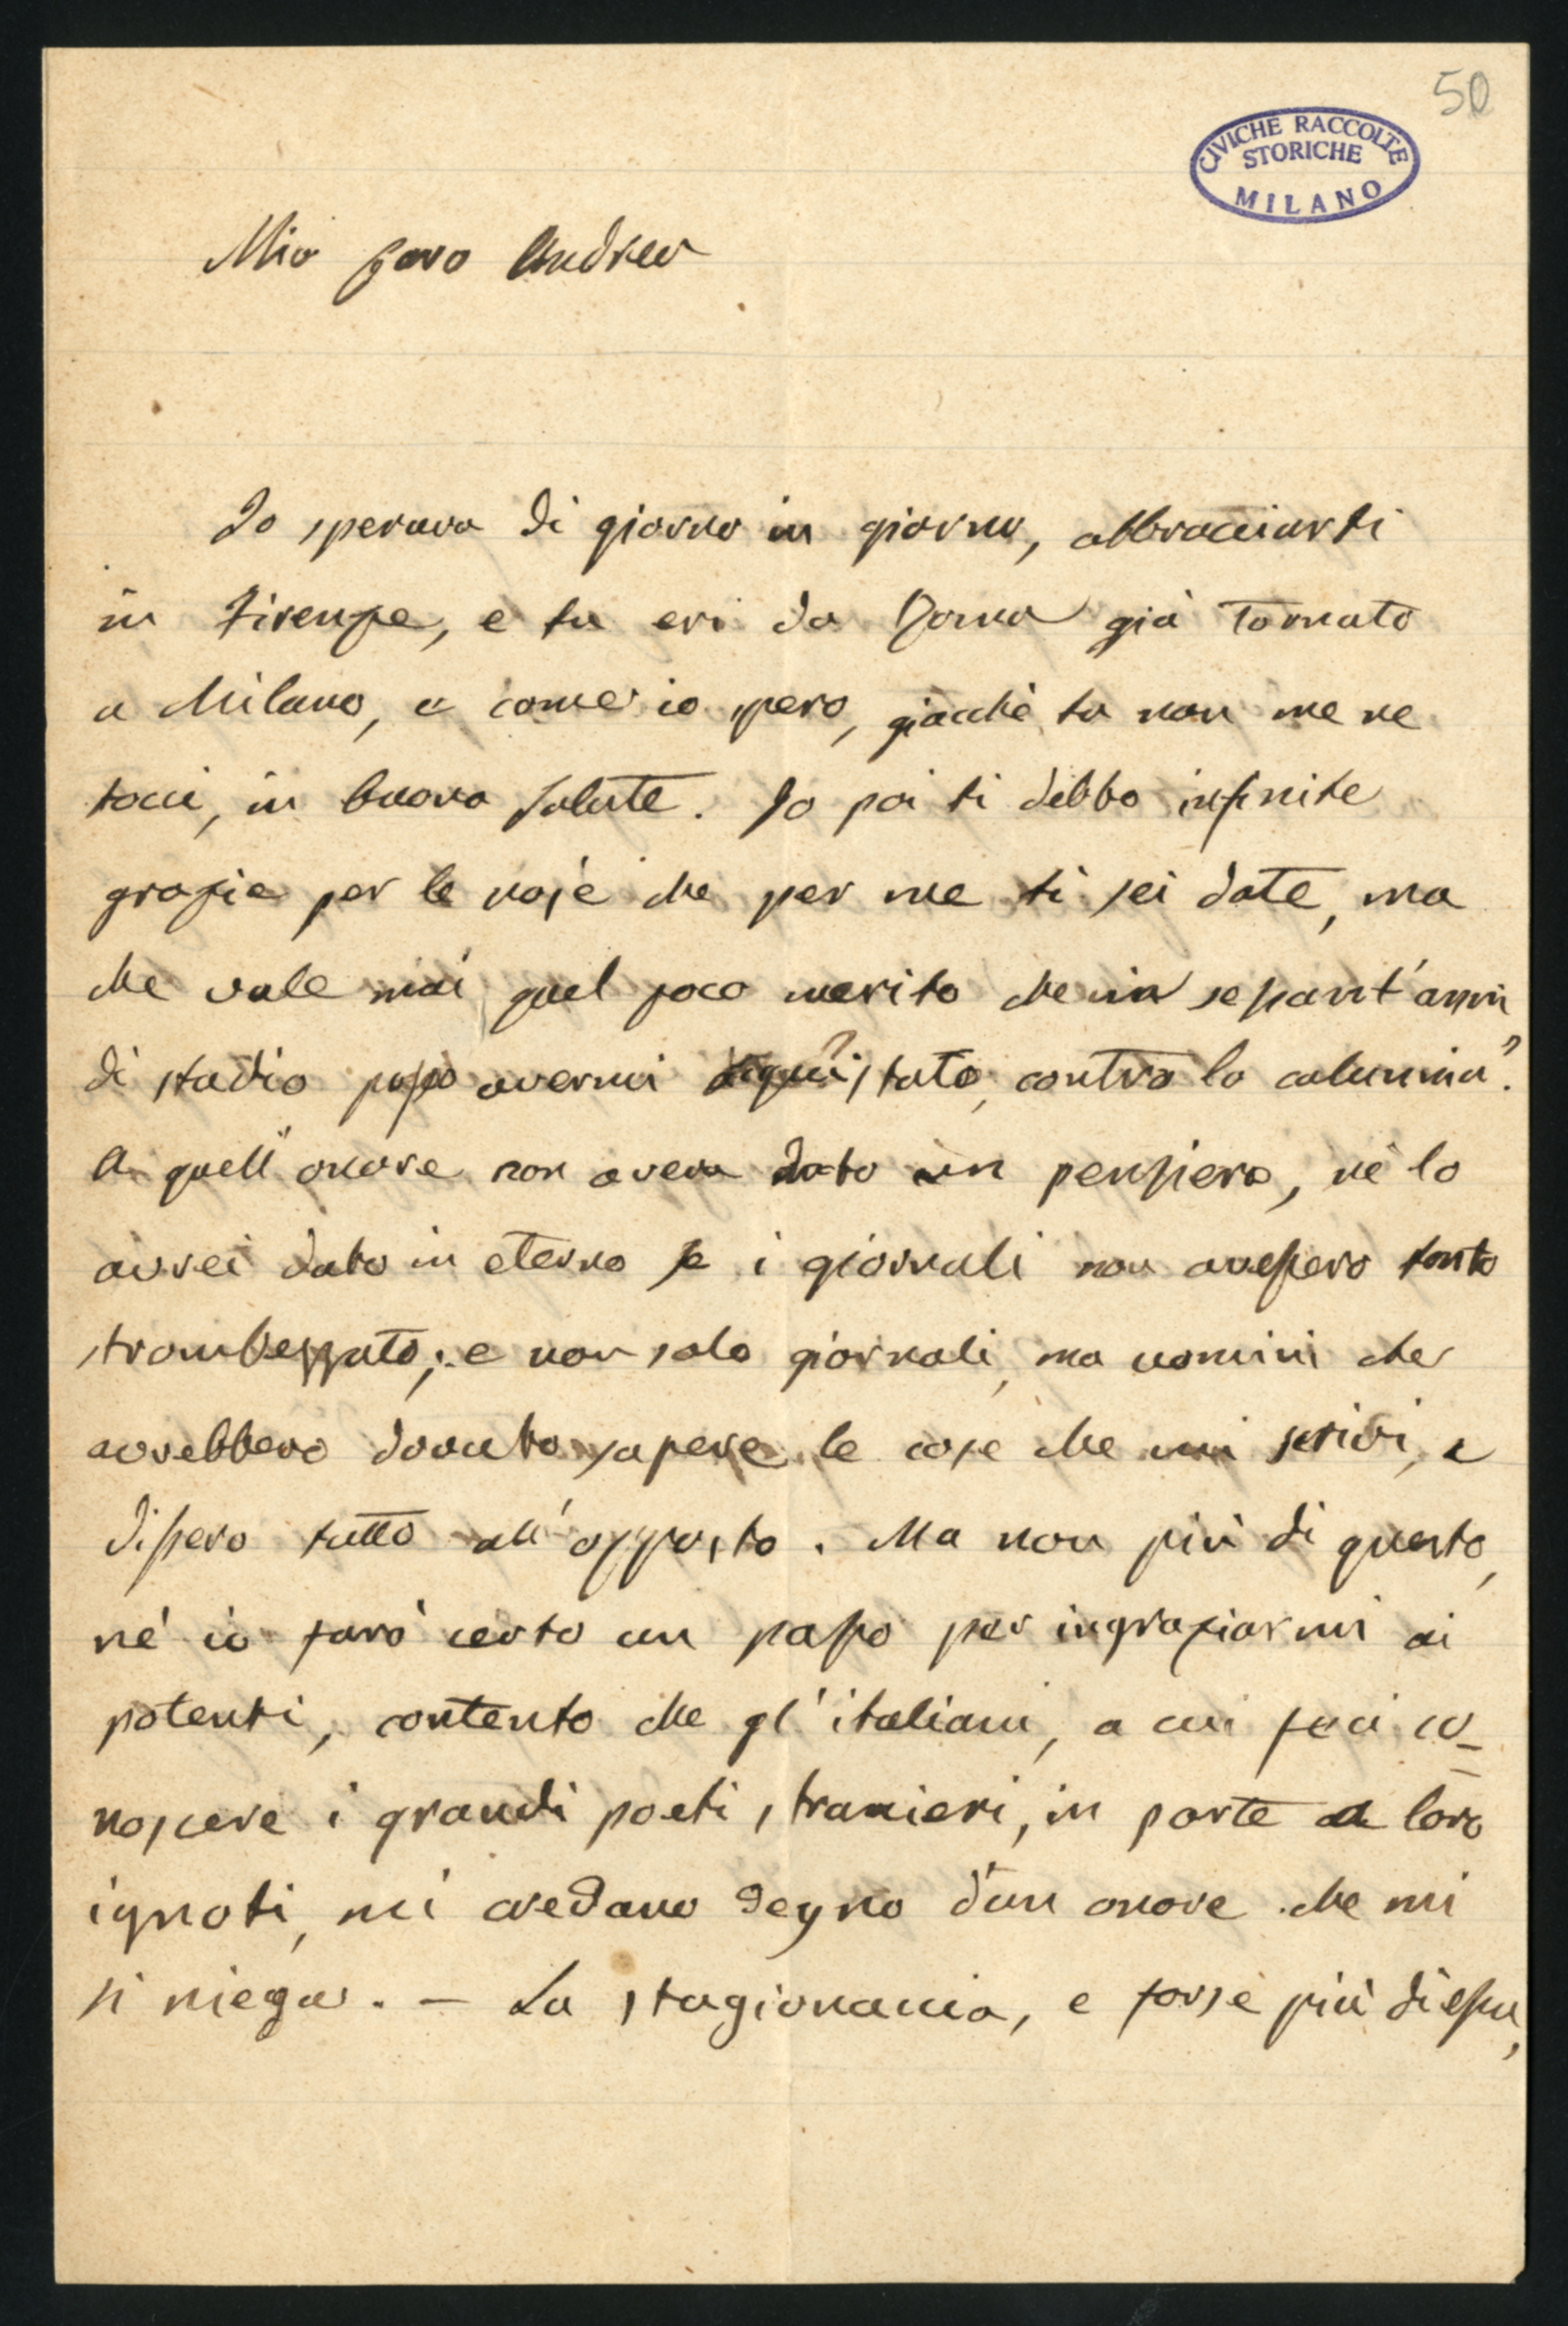 50
CIVICHE RACCOLTE
STORICHE
MILANO
Mio caro Andrea
Io sperava di giorno in giorno, abbracciarti
in Firenze, e tu eri da Roma già tornato
a Milano, e come io spero, giacchè tu non me ne
tocci, in buona salute. Io poi ti debbo infinite
grazie per le noje che per me ti sei date, ma
che vale mai quel poco merito che in sessant'anni
di studio posso avermi acquistato, contro la calunnia?
A quell'onore non aveva dato un pensiero, nè lo
avrei dato in eterno se i giornali non avessero tanto
strombezzato; e non solo giornali, ma uomini che
avrebbero dovuto sapere le cose che mi scrivi, e
dissero tutto all'opposto. Ma non più di questo,
nè io farò certo un passo per ingraziarmi ai
potenti, contento che gl'italiani, a cui feci co-
noscere i grandi poeti stranieri, in parte a loro
ignoti, mi credano degno d'un onore che mi
si niega. — La stagionaccia, e forse più di essa,